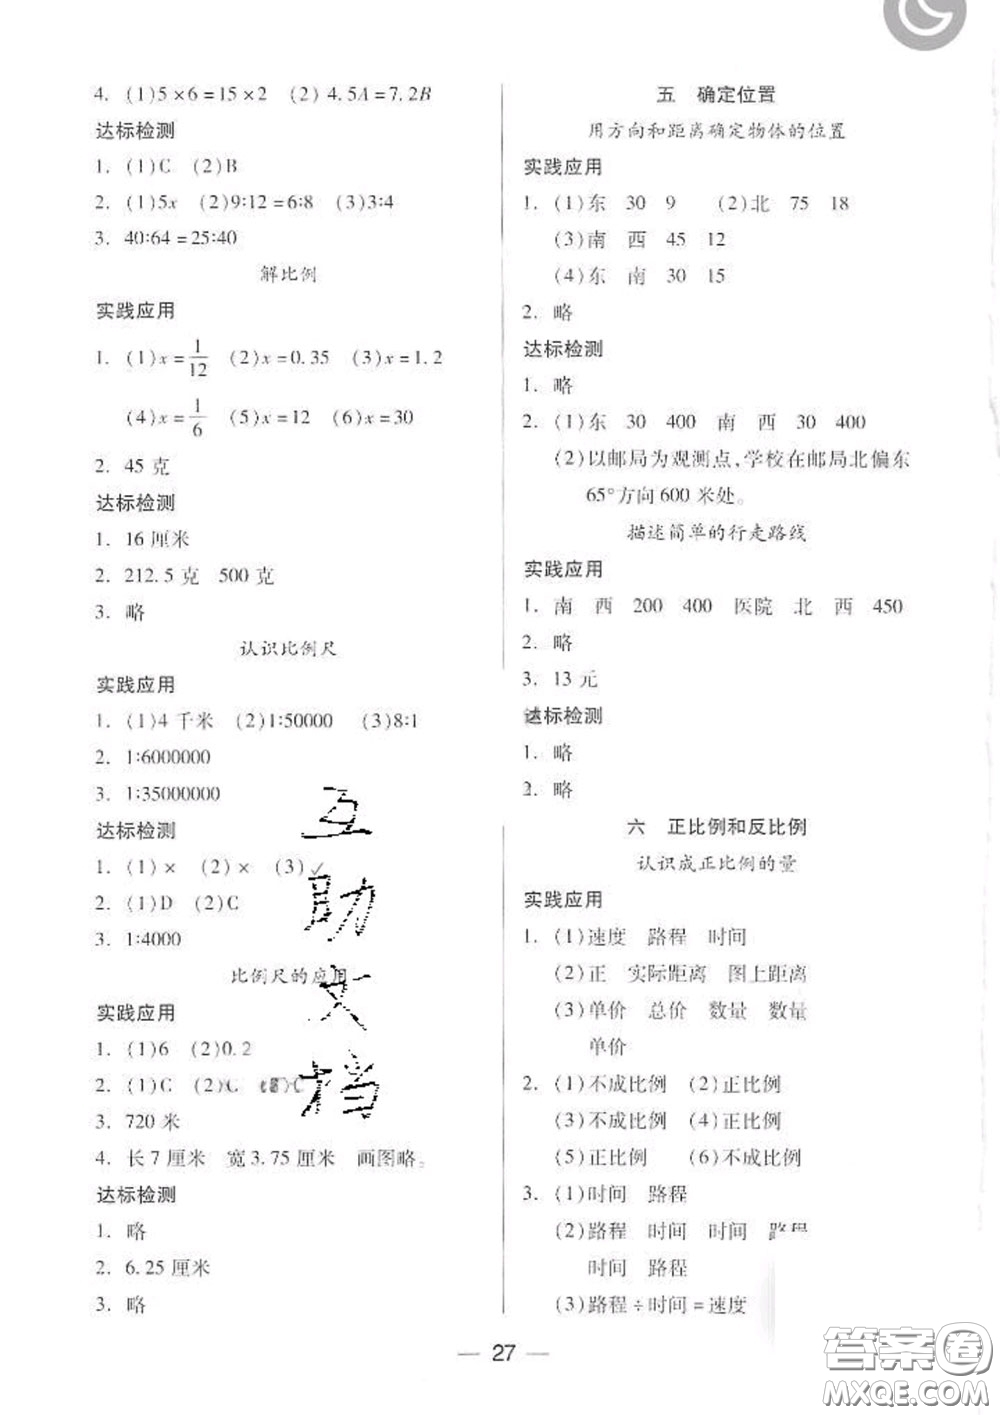 4. (1)5×6=15×2 (2) 4.5A=7.2B
达标检测
1. (1)C (2)B
2. (1)5x (2)9∶12=6∶8 (3)3∶4
3. 40∶64=25∶40
解比例
实践应用
1. (1)x=1/12 (2)x=0.35 (3)x=1.2
(4)x=1/6 (5)x=12 (6)x=30
2. 45 克
达标检测
1. 16 厘米
2. 212.5 克 500 克
3. 略
认识比例尺
实践应用
1. (1)4 千米 (2)1∶50000 (3)8∶1
2. 1∶6000000
3. 1∶35000000
达标检测
1. (1)× (2)× (3)✓
2. (1)D (2)C
3. 1∶4000
比例尺的应用
实践应用
1. (1)6 (2)0.2
2. (1)C (2)C C
3. 720 米
4. 长 7 厘米 宽 3.75 厘米 画图略。
达标检测
1. 略
2. 6.25 厘米
3. 略
五 确定位置
用方向和距离确定物体的位置
实践应用
1. (1)东 30 9 (2)北 75 18
(3)南 西 45 12
(4)东 南 30 15
2. 略
达标检测
1. 略
2. (1)东 30 400 南 西 30 400
(2)以邮局为观测点,学校在邮局北偏东
65°方向 600 米处。
描述简单的行走路线
实践应用
1. 南 西 200 400 医院 北 西 450
2. 略
3. 13 元
达标检测
1. 略
2. 略
六 正比例和反比例
认识成正比例的量
实践应用
1. (1)速度 路程 时间
(2)正 实际距离 图上距离
(3)单价 总价 数量 数量
单价
2. (1)不成比例 (2)正比例
(3)不成比例 (4)正比例
(5)正比例 (6)不成比例
3. (1)时间 路程
(2)路程 时间 时间 路程
时间 路程
(3)路程÷时间=速度
互助文档
27
答案卷
MXQE.COM